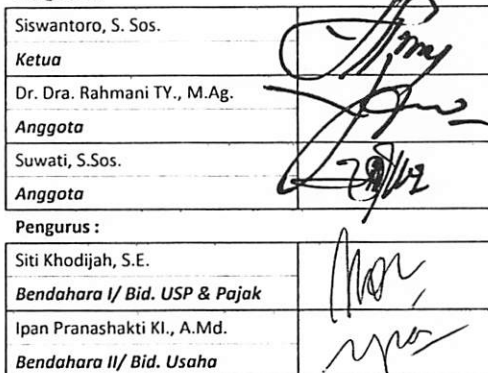 Siswantoro, S. Sos.
Ketua
Dr. Dra. Rahmani TY., M.Ag.
Anggota
Suwati, S.Sos.
Anggota
Pengurus :
Siti Khodijah, S.E.
Bendahara I/ Bid. USP & Pajak
Ipan Pranashakti KI., A.Md.
Bendahara II/ Bid. Usaha